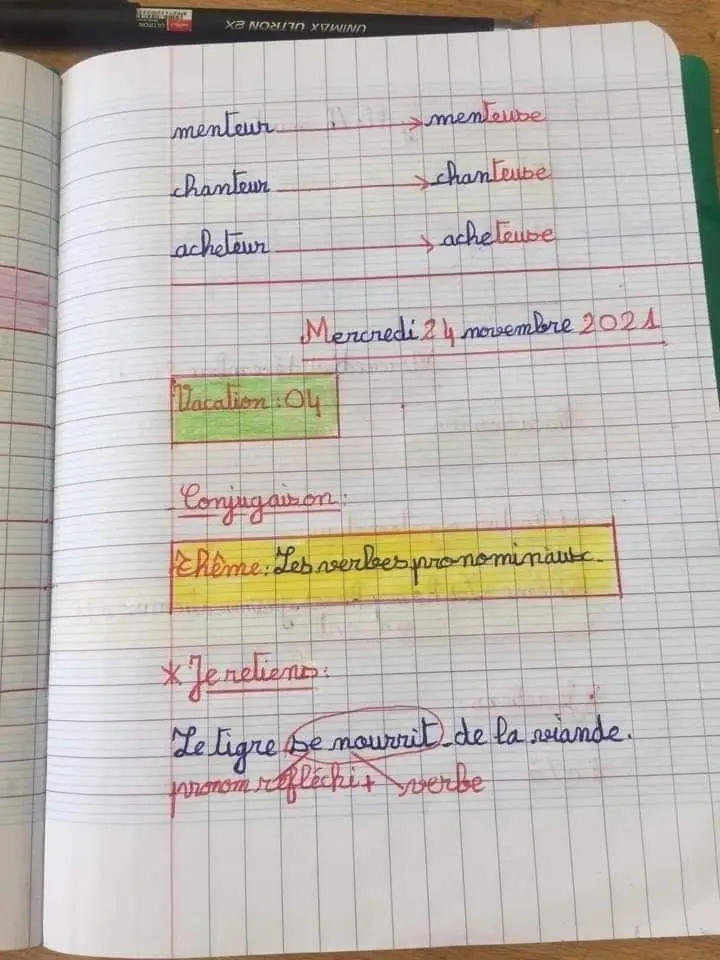 UNIMAX ULTRON 2X
menteur → menteuse
chanteur → chanteuse
acheteur → acheteuse
Mercredi 24 novembre 2021
Vacation : 04
Conjugaison :
Thème : Les verbes pronominaux.
* Je retiens :
Le tigre se nourrit de la viande.
pronom réfléchi + verbe